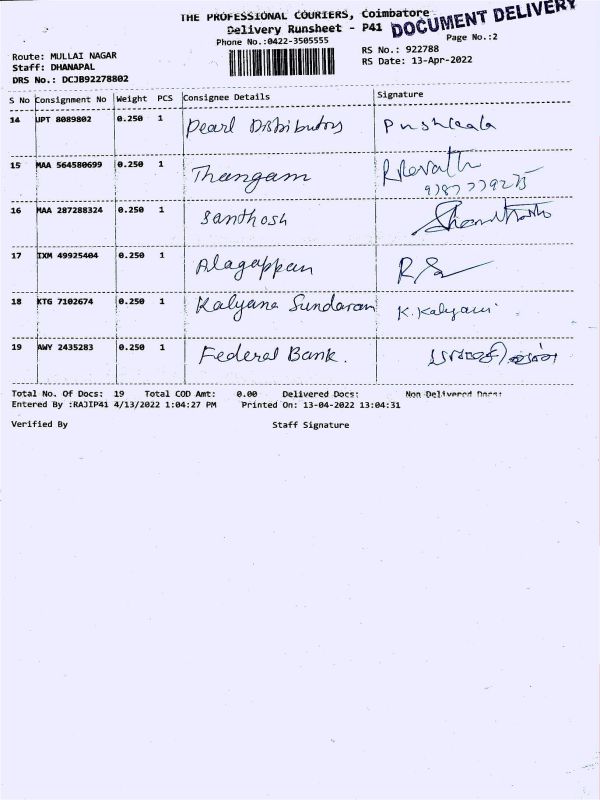 THE PROFESSIONAL COURIERS, Coimbatore
Delivery Runsheet - P41
DOCUMENT DELIVERY
Phone No.:0422-3505555
Page No.:2
Route: MULLAI NAGAR
RS No.: 922788
Staff: DHANAPAL
RS Date: 13-Apr-2022
DRS No.: DCJB92278802
S No Consignment No Weight PCS Consignee Details Signature
14 UPT 8089802 0.250 1 Pearl Distributors
15 MAA 564580699 0.250 1 Thangam R Revath
16 MAA 287288324 0.250 1 Santhosh
17 IXM 49925404 0.250 1 Alagappan
18 KTG 7102674 0.250 1 Kalyana Sundaram K. Kalyani
19 AWY 2435283 0.250 1 Federal Bank.
Total No. Of Docs: 19 Total COD Amt: 0.00 Delivered Docs: Non Delivered Docs:
Entered By :RAJIP41 4/13/2022 1:04:27 PM Printed On: 13-04-2022 13:04:31
Verified By Staff Signature